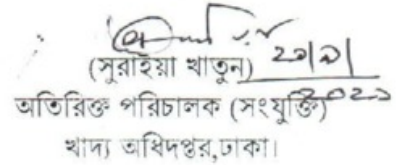 (সুরাইয়া খাতুন)
অতিরিক্ত পরিচালক (সংযুক্তি)
খাদ্য অধিদপ্তর,ঢাকা।